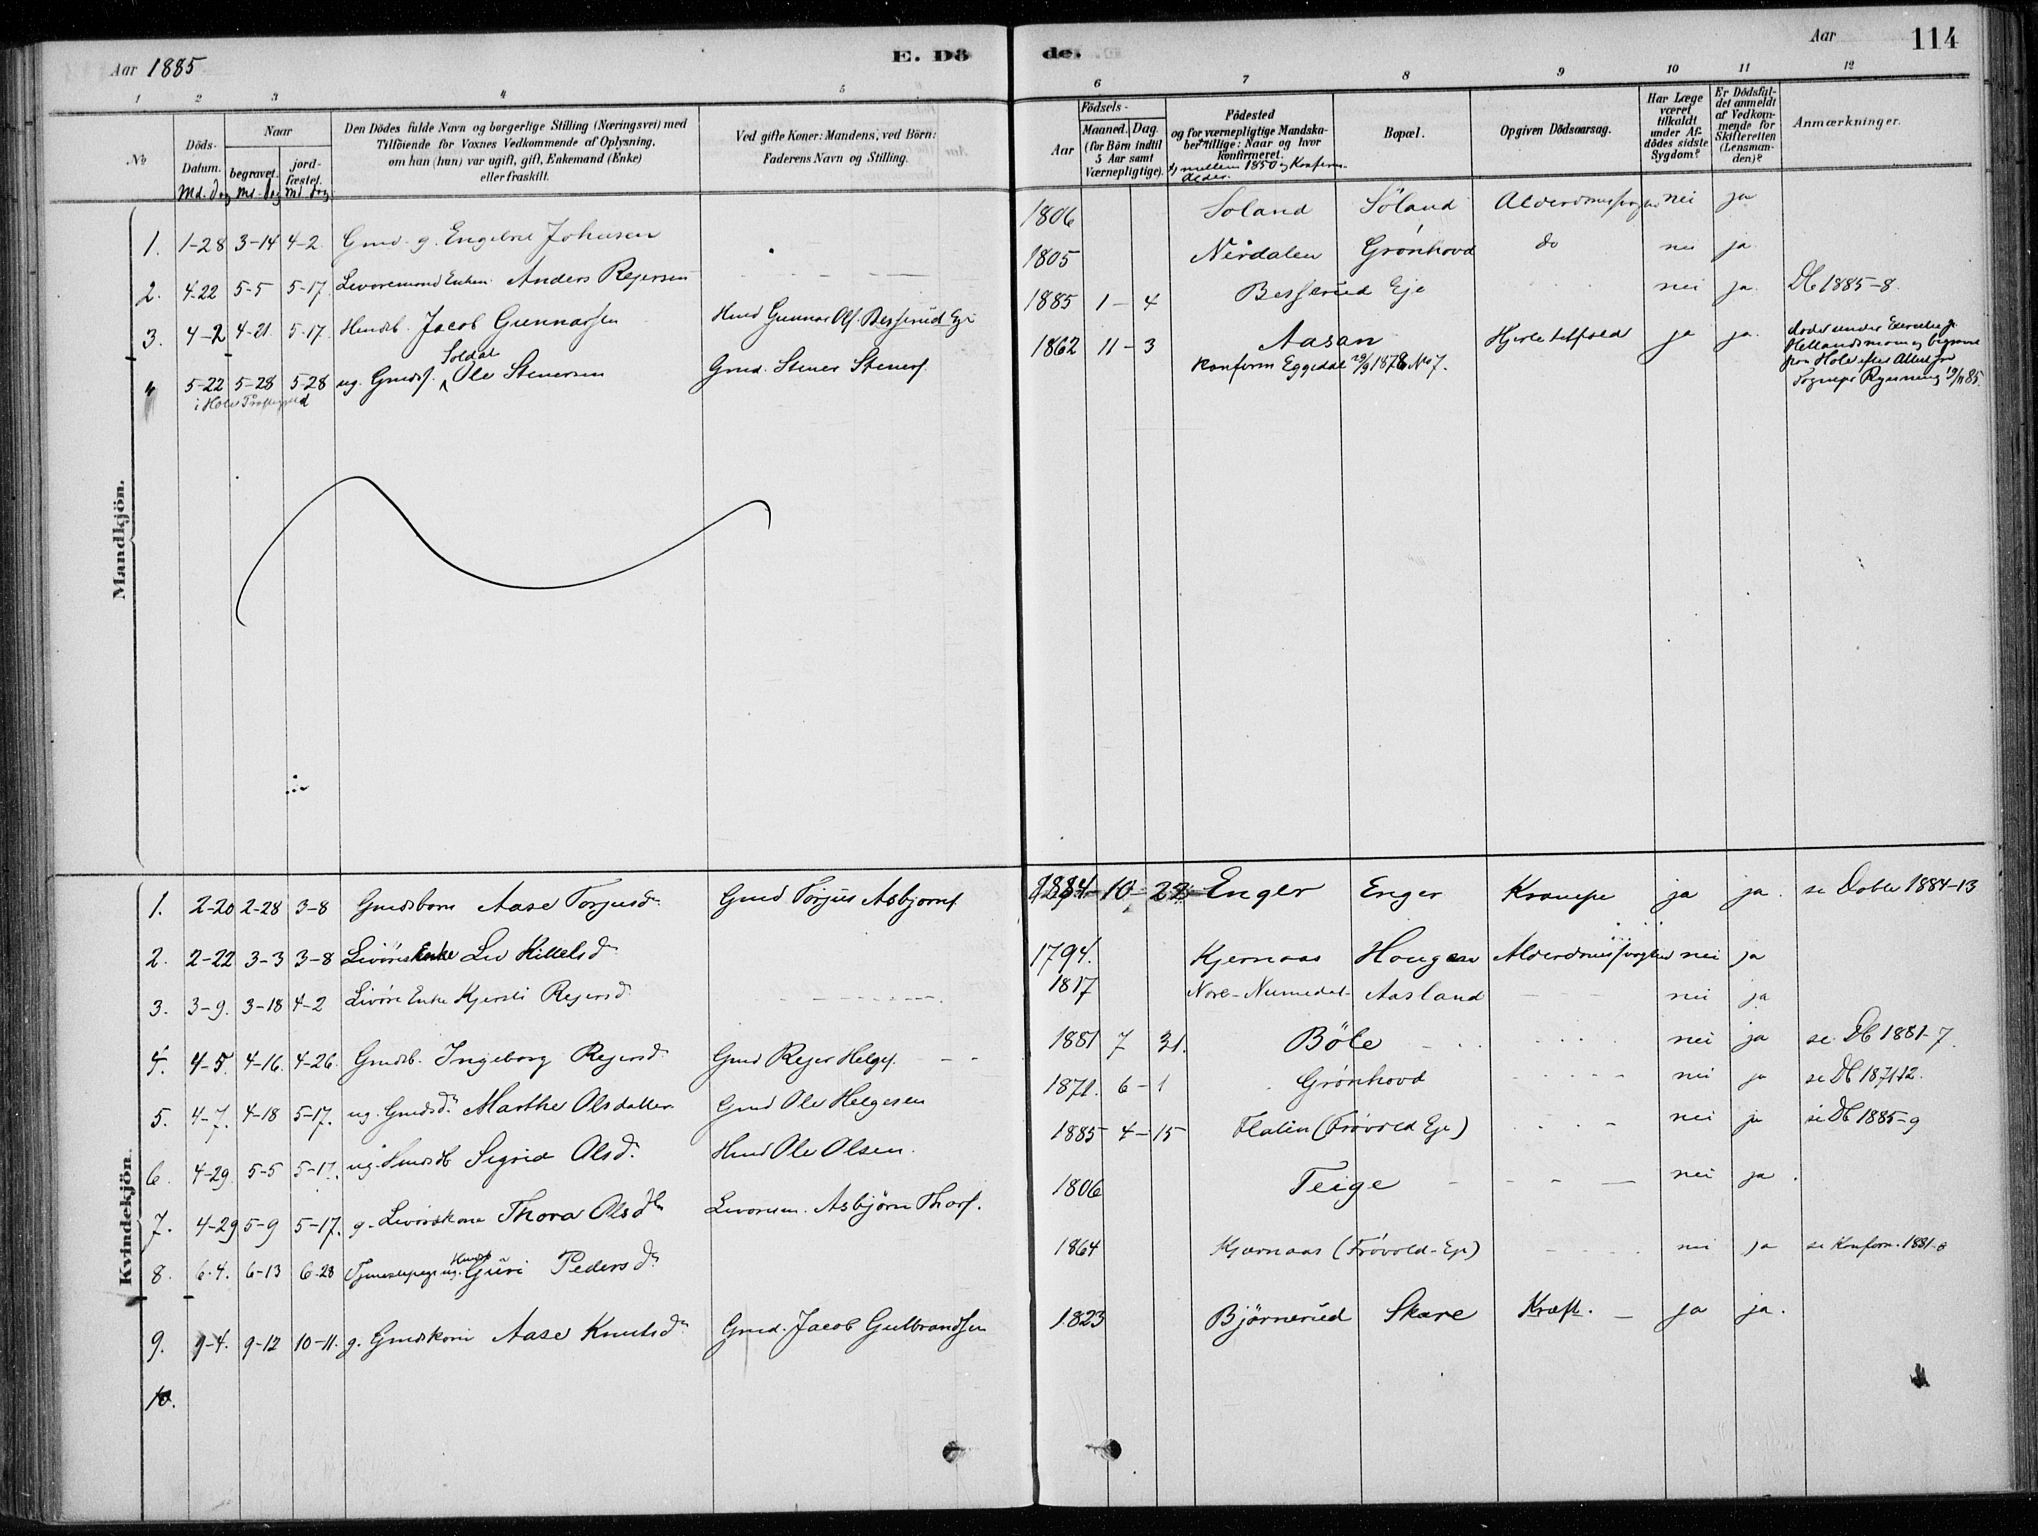 Aar 1885
E. Dö
de.
Aar
114
1 2 3 4 5 6 7 8 9 10 11 12
No
Döds-Datum.
Md. Dag
Naar
begravet.
Md. Dag
jord-fæstet.
Md Dag
Den Dödes fulde Navn og borgerlige Stilling (Næringsvei) med
Tilföiende for Voxnes Vedkommende af Oplysning,
om han (hun) var ugift, gift, Enkemand (Enke)
eller fraskilt.
Ved gifte Koner: Mandens, ved Börn:
Faderens Navn og Stilling.
Födsels-
Aar
Maaned. Dag.
(for Börn indtil
5 Aar samt
Værnepligtige).
Födested
og for værnepligtige Mandska-
ber tillige: Naar og hvor
konfirmeret.
mellem 1850 og Konfirm.
Alder.
Bopæl.
Opgiven Dödsaarsag.
Har Læge
været
tilkaldt
under Af-
dödes sidste
Sygdom?
Er Dödsfal-
det anmeldt
af Vedkom-
mende for
Skifteretten
(Lensman-
den)?
Anmærkninger.
Mandkjön.
1. 1-28 3-14 4-2 Gmd. g. Engebret Johnsen 1806 Soland Soland Alderdomssvaghed nei ja
2. 4-22 5-5 5-17 Livøremand Enkem. Anders Rejersen 1805 Nerdalen Grønhovd do nei ja
3. 4-2 4-21 5-17 Husmdsb. Jacob Gunnarsen Husmd Gunnar Ols. Besserud Eje 1885 1-4 Besserud Eje nei ja Db 1885-8
4 5-22 5-28 5-28 ug. Gmdss. Soldat Ole Stenersen Gmd. Stener Steners. 1862 11-3 Aasan Hjertetilfæld ja ja
i Hole Præstegjeld
Konfirm Eggedal 29/9 1878 No 7.
Døde under Exercits paa
Hellandsmoen og begravet
fra Hole efter Attest fra
Sognepr Rynning 19/11 85.
Kvindekjön.
1. 2-20 2-28 3-8 Gmdsbarn Aase Torjusdr Gmd Torjus Asbjørns. 1884-10-22 Enger Enger Krampe ja ja. se Døbte 1884-13
2. 2-22 3-3 3-8 Livøres Enke Liv Kittelsdr 1794. Kjernaas Haugen Alderdomssvaghed nei ja
3. 3-9. 3-18 4-2 Livøre Enke Kjersti Rejersd 1817 Nore-Numedal Aasland nei ja
4. 4-5. 4-16. 4-26. Gmdsb. Ingeborg Rejersd Gmd Rejer Helges. 1881 7 31. Böle nei ja se Db 1881-7
5. 4-7. 4-18 5-17. ug. Gmdsdr Marthe Olsdatter Gmd Ole Helgesen 1871. 6-1 Grønhovd nei ja se Db 1871-12.
6. 4-29. 5-5 5-17. ug. Husmdsb Sigrid Olsd. Husmd Ole Olsen. 1885 4-15 Flatin (Frøvold Eje) nei ja se Db 1885-9
7. 4-29 5-9 5-17. g. Livøreskone Thora Olsdtr Livørem. Asbjørn Thors. 1806 Teige nei ja
8. 6-4. 6-13 6-28 Tjenestepige ug. Husmd Guri Pedersdr 1864 Kjærnaas (Frøvold-Eje) nei ja se Konfirm. 1881-8
9. 9-4. 9-12 10-11. g. Gmdskone Aase Knutsdr Gmd. Jacob Gulbrandsen 1823 Bjørnerud Skare Kræft. ja ja.
10.